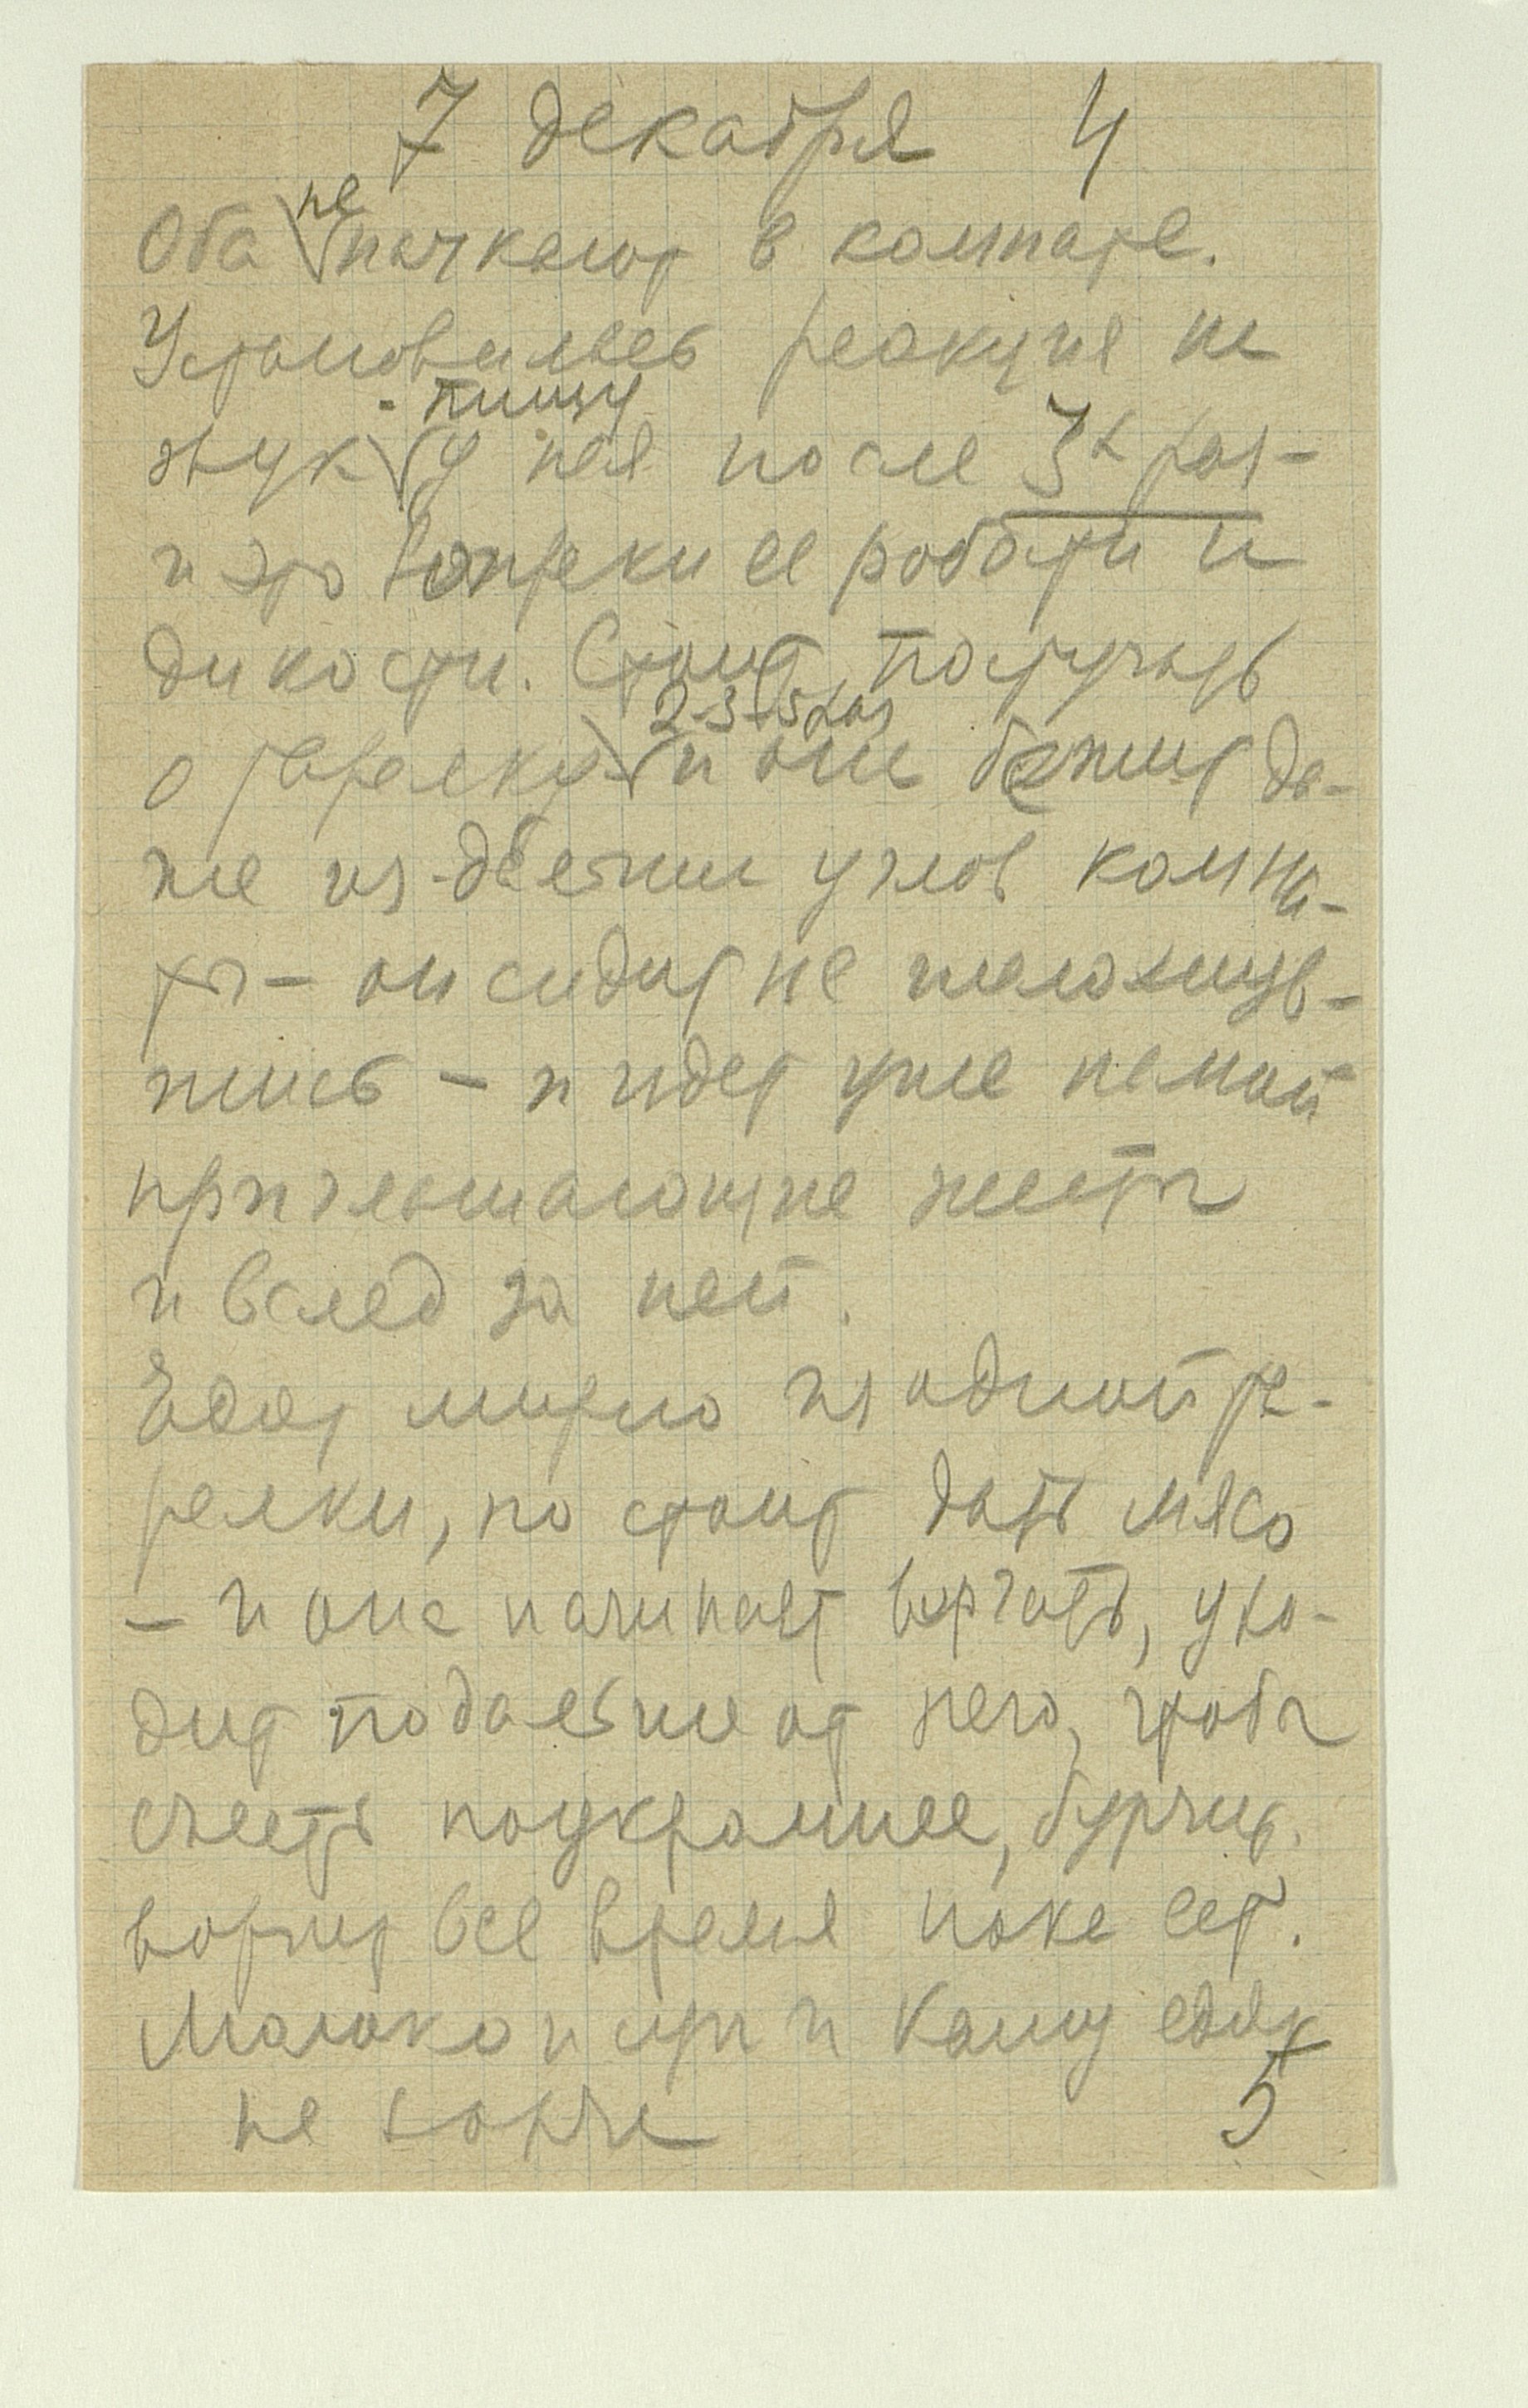 7 декабря 4
не
Оба пачкают в комнате.
Установилась реакция на
- пищу
звук у нея после 3х раз –
и это вопреки ее робости и
дикости. Стоит постучать
2-3-5 раз
о тарелку и она бежит да-
же из -  углов комна-
ты – он сидит не шелохнув-
шись – и идет уже на мои
приглашающие жесты
и вслед за ней.
Едят мирно из одной та-
релки, но стоит дать мясо
– и она начинает ворчать, ухо-
дит подальше от него, чтобы
съесть поукромнее, бурчит.
ворчит все время пока ест.
Молоко и суп и кашу едят
не ворча 5